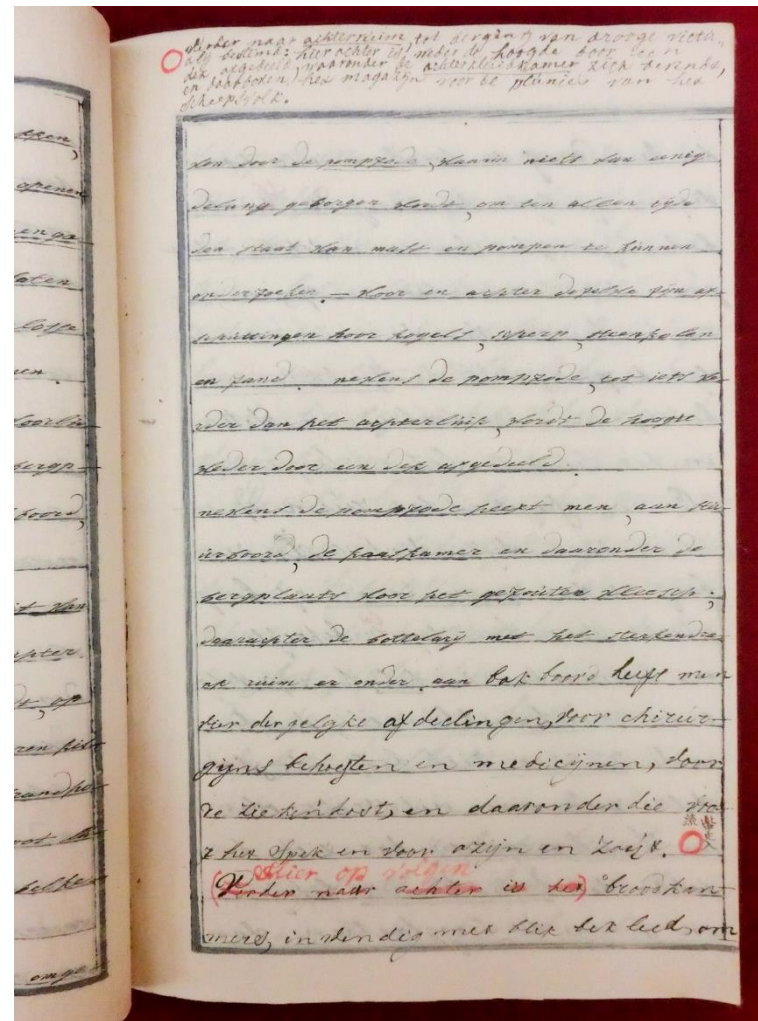 Verder naar achterruim, tot berging van drooge victu-
alij bestemd: hier achter is, weder de hoogte door een
dek afgedeeld, waaronder de achterkleedkamer zich bevindt,
en daarboven) het magazijn voor de plunje van het
scheepsvolk.
van door de pompzode, waarin niets van eenig
belang geborgen wordt, om ten allen tijde
den staat van mast en pompen te kunnen
onderzoeken. — voor en achter dezelve zijn af-
schuttingen voor kogels, scherp, steenkolen
en zand. nevens de pompzode, tot iets ve-
rder dan het achterluik, wordt de hoogte
weder door een dek afgedeeld.
nevens de pompzode heeft men, aan stu-
urboord, de kaaskamer en daaronder de
bergplaats voor het gezouten vleesch;
daarachter de bottelarij met het sterkendra-
nk ruim er onder. aan bakboord heeft men
vier dergelyke afdeelingen, voor chirur-
gijns behoeften en medicijnen, voor
de ziekenkost, en daaronder die voo-
r het spek en voor azijn en zoeje.
Hier op volgen
(Verder naar achter is het) broodkam-
mers, inwendig met blik bekleed, om
eken,
openen
en ga
laten
losse
en.
boord,
it van
achter
dt, op
omge